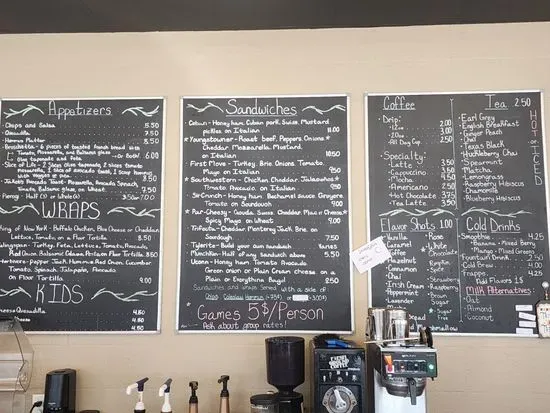 Appetizers
Chips and Salsa 5.50
Quesadilla 7.50
Hummus Platter 8.50
Tomato, Mozzarella, and Balsamic glaze
Bruschetta - 6 pieces of toasted french bread with
Olive tapenade and Feta -Or Both! 6.00
Slice of Life - 2 Slices Olive tapenade, 2 slices tomato
Avocado, Spinach
Tomato, Balsamic glaze on Wheat. 7.50
Pierogi - Half (3) or Whole (6) 3.50 or 7.00
WRAPS
King of New York - Buffalo Chicken, Blue Cheese or Cheddar
Lettuce, Tomato, on a Flour Tortilla 8.50
Turkey, Feta, Lettuce, Tomato,
Red Onion, Balsamic Glaze, on a Flour Tortilla 8.50
Pepper Jack, Hummus, Red Onion, Cucumber
Tomato, Spinach, Jalapeño, Avocado
on Flour Tortilla 9.00
KIDS
Cheese Quesadilla 4.50
4.50
4.50
Sandwiches
Cuban - Honey ham, Cuban pork, Swiss, Mustard
pickles on Italian 11.00
★Youngstowner - Roast beef, Peppers, Onions★
Cheddar, Mozzarella, Mustard,
on Italian 10.50
First Move - Turkey, Brie, Onions, Tomato,
Mayo on Italian 9.50
★Southwestern - Chicken, Cheddar, Jalapeños★
Tomato, Avocado, on Italian 9.50
Sir Crunch - Honey ham, Bechamel sauce, Gruyere
Tomato on Sourdough 9.00
★Pair-Cheesy - Gouda, Swiss, Cheddar, Mac n' Cheese★
Spicy Mayo on Wheat 9.00
TriFecta - Cheddar, Monterey Jack, Brie, on
Sourdough 7.50
Tylerite - Build your own Sandwich Varies
Munchkin - Half of any sandwich above 5.50
Utown - Honey ham, Tomato, Avocado
Green onion or Plain Cream cheese on a
Plain or Everything Bagel 2.50
Sandwiches and Wraps Served with a side of
Chips
Games 5$/Person
Ask about group rates!
Coffee
Drip:
12oz 2.00
20oz 3.00
All Day Cup 2.50
Specialty:
Latte 3.50
Cappuccino 3.50
Mocha 4.50
Americano 2.50
Hot Chocolate 3.75
Tea Latte 3.50
Tea 2.50
Earl Grey
English Breakfast
Ginger Peach
Chai
Texas Black
Huckleberry Chai
Spearmint
Matcha
Lemongrass
Raspberry Hibiscus
Chamomile
Blueberry Hibiscus
HOT
ICED
Flavor Shots 1.00
Vanilla
Caramel
Coffee
Hazelnut
Cinnamon
Chai
Irish Cream
Peppermint
Lavender
Rose
★White
Chocolate
Pumpkin
Spice
Strawberry
Raspberry
Brown
Sugar
★Sugar
Free
Cold Drinks
Smoothie 4.25
Banana • Mixed Berry
Mango • Mixed Greens
Fountain Drink 2.50
Cold Brew 4.50
Frappe 4.25
Add Flavors 1$
Milk Alternatives:
Oat
Almond
Coconut